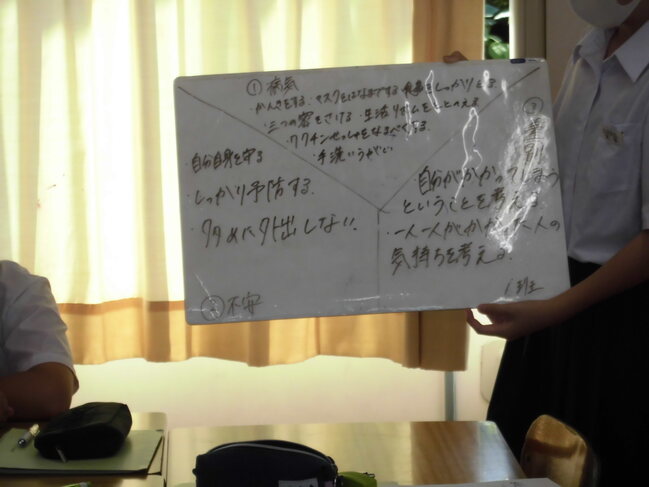 ① 病気
・かんきをする ・マスクをはなまでする ・食事をしっかりとる
・三つの密をさける ・生活リズムをととのえる
・ワクチンせっしゅをなるべくする
・手洗いうがい
・自分自身を守る
・しっかり予防する
・外出しない
② 不安
③ 差別
自分がかかってしまう
ということを考える
・一人一人がかかった人の
気持ちを考える
1班